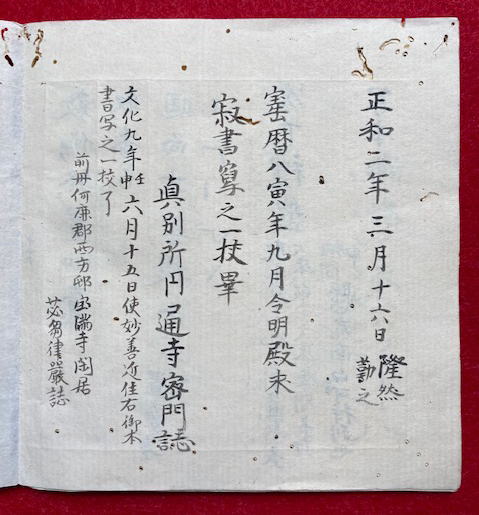 正和二年三月十六日 隆然
勤之
宝暦八寅年九月令明殿求
寂書寫之一挍畢
眞別所円通寺密門誌
文化九年壬申六月十五日使妙善近住右御本
書写之一挍了
前丹何鹿郡西方邨宝瑞寺閑居
苾蒭律嚴誌